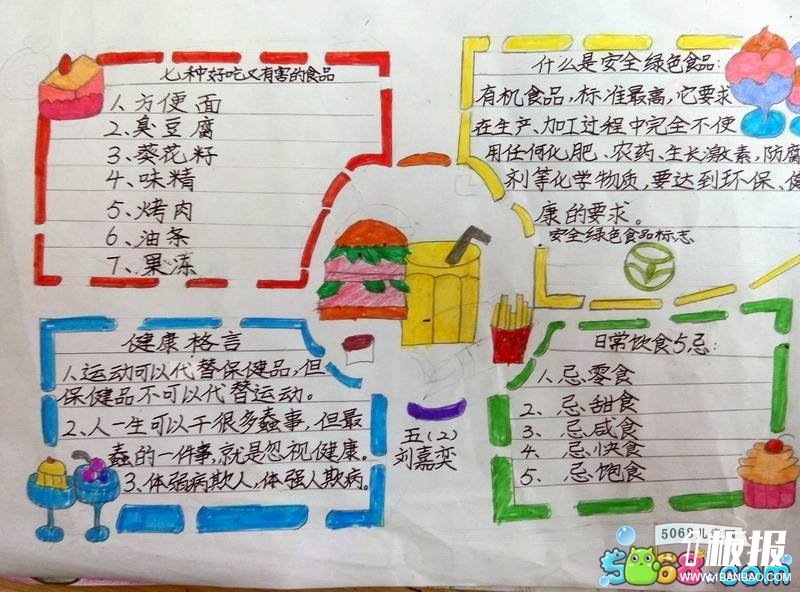 七种好吃又有害的食品
1、方便面
2、臭豆腐
3、葵花籽
4、味精
5、烤肉
6、油条
7、果冻
什么是安全绿色食品:
有机食品,标准最高,它要求
在生产、加工过程中完全不使
用任何化肥、农药、生长激素,防腐
剂等化学物质,要达到环保、健
康的要求。
安全绿色食品标志
健康格言
1、运动可以代替保健品,但
保健品不可以代替运动。
2、人一生可以干很多蠢事,但最
蠢的一件事,就是忽视健康。
3、体弱病欺人,体强人欺病。
五(2)
刘嘉奕
日常饮食5忌:
1、忌零食
2、忌甜食
3、忌咸食
4、忌快食
5、忌饱食
5068儿童网
板报
5068.com
WWW.41BANBAO.COM